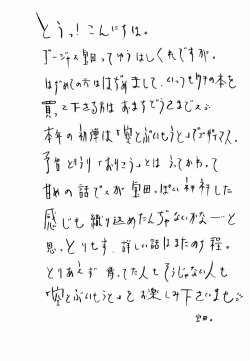 とうっ！こんにちは。
ゴージャス宝田ってゆうはしくれですが。
はじめての方ははじめまして、いつもウチの本を
買って下さる方はおまちどうさまでスっ。
本年の初弾は「空とぶいもうと」でゴザイマス。
予告どうり「おりこう」とはうってかわって
甘めの話でスが宝田っぽい
感じも織り込めたんじゃないかなーと
思っとりもす。詳しい話はまたの程。
とりあえず待ってた人もそうじゃない人も
「空とぶいもうと」をお楽しみ下さいませっ
宝田。